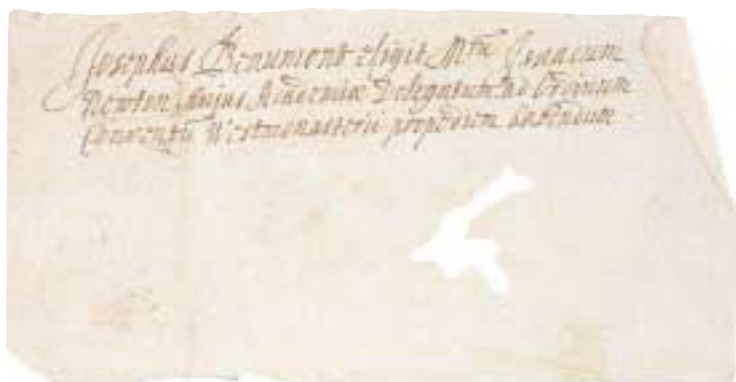 Josephus Beaumont eligit Mrũ Isaacum
Newton hujus Academiæ Delegatum ad Ordinum
Conventũ Westmonasterii propediem habendum.